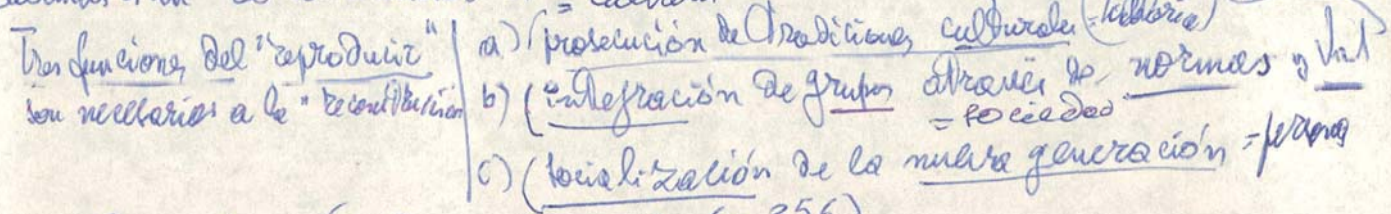 = cultura
Tres funciones del "reproducir"
son necesarias a la "reconstitución
a) (prosecución de tradiciones culturales (historia)
b) (integración de grupos através de normas y Val
= sociedad
c) (socialización de la nueva generación = persona
256)